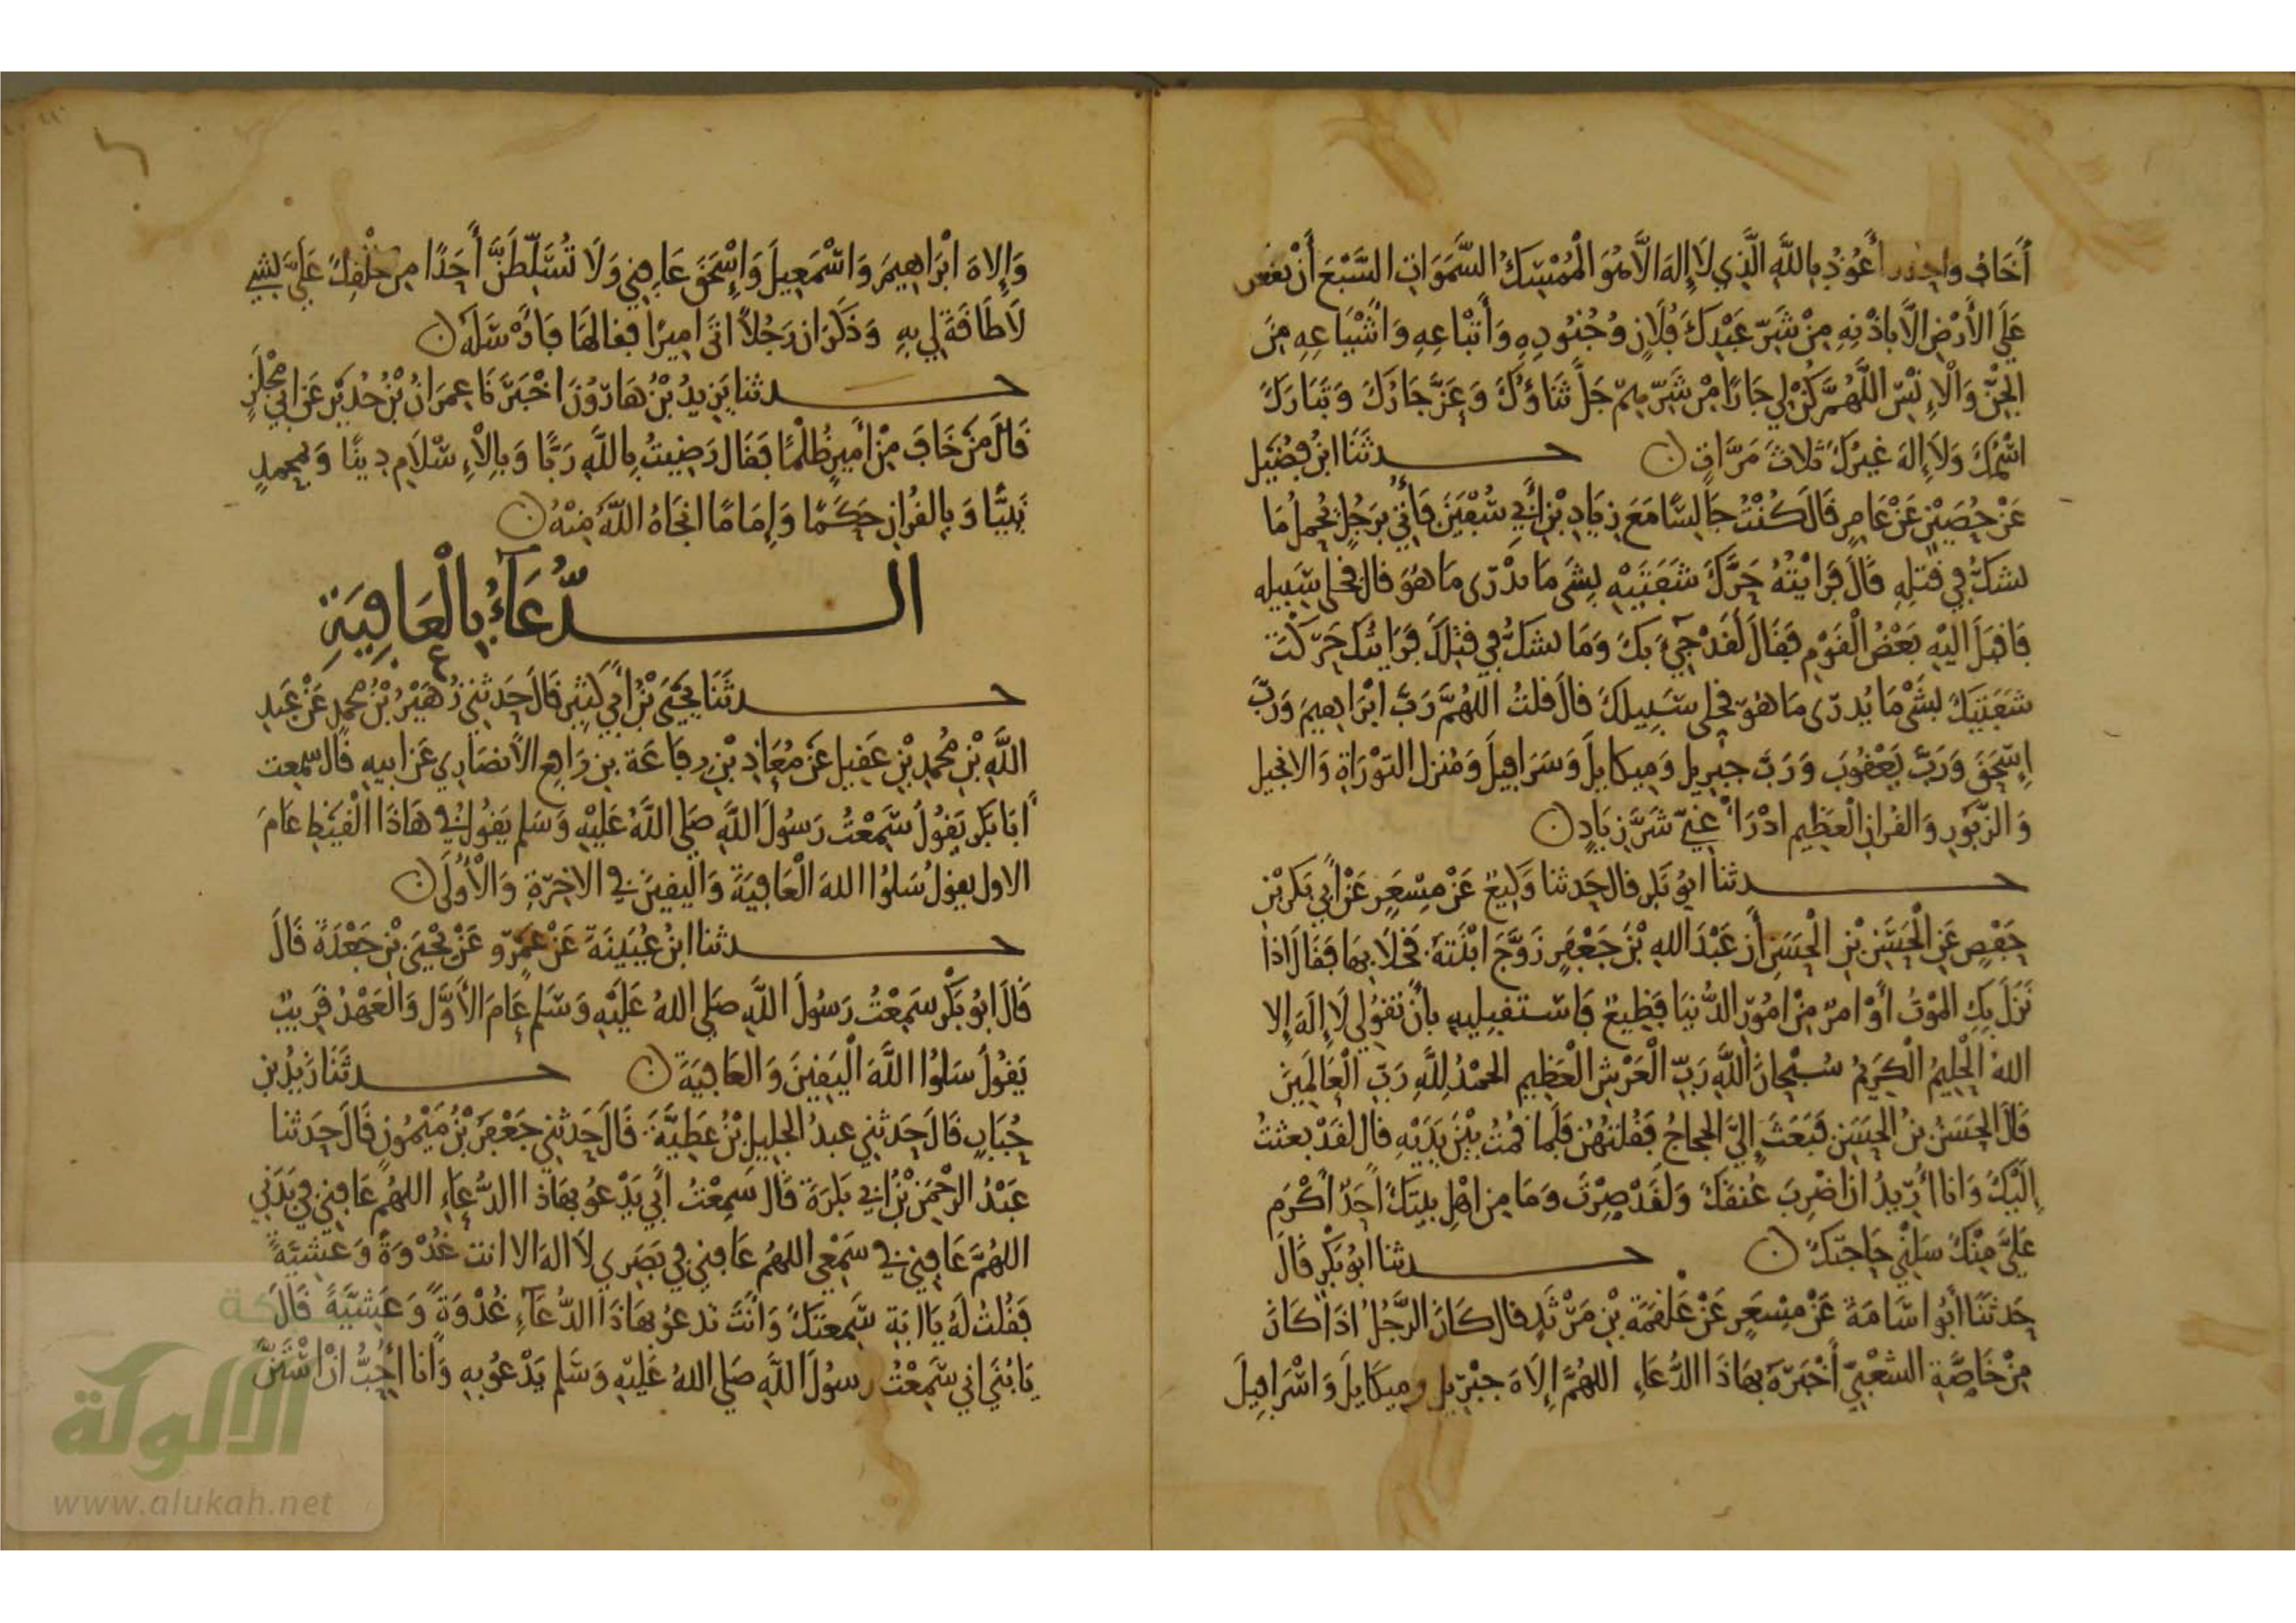 أَخَافُ واحذر أَعُوذُ بِاللَّهِ الَّذِي لَا إِلَهَ الَّا هُوَ الْمُمْسِكُ السَّمَوَاتِ السَّبْعَ أَنْ يقعن
عَلَى الأَرْضِ الَّا بِاذْنِهِ مِنْ شَرِّ عَبْدِكَ فُلَانٍ وَجُنُودِهِ وَأَتْبَاعِهِ وَأَشْيَاعِهِ مِنَ
الْجِنِّ وَالْإِنْسِ اللَّهُمَّ كُنْ لِي جَارًا مِنْ شَرِّهِمْ جَلَّ ثَنَاؤُكَ وَعَزَّ جَارُكَ وَتَبَارَكَ
اسْمُكَ وَلَا إِلَهَ غَيْرُكَ ثَلَاثَ مَرَّاتٍ ن حدثَنَا ابْنُ فُضَيْلٍ
عَنْ حُصَيْنٍ عَنْ عَامِرٍ قَالَ كُنْتُ جَالِسًا مَعَ زِيَادِ بْنِ أَبِي سُفْيَنَ فَأُتِيَ بِرَجُلٍ يُحمل مَا
نشك فِي قَتْلِهِ قَالَ فَرَايْتُهُ حَرَّكَ شَفَتَيْهِ بِشَىٍ مَا ندْرى مَا هُوَ قال فخلى سَبِيله
فَاقبَلَ الَيْهِ بَعْضُ الْقَوْمِ فَقَالَ لَقَدْ جِيءَ بِكَ وَمَا نشك فِي قتلك فَرَايتُك حَرَّكْتَ
شَفَتَيْكَ بِشَىْ مَا يُدرى مَا هُوَ فخلى سَبِيلَكَ قال قلتُ اللَّهُمَّ رَبَّ ابْرَاهِيمَ وَرَبَّ
إِسْحَقَ وَرَبَّ يَعْقُوبَ وَرَبَّ جبريل وَمِيكايلَ وَسَرَافِيلَ وَمُنزل التوْرَاةِ وَالانجيل
وَالزَّبُورِ وَالقُرانِ العَظِيمِ ادْرَأْ عَنِّي شَرَّ زِيَادٍ ن
حدثنا ابُو بَكر قال حَدثنا وَكِيعٌ عَنْ مِسْعَرٍ عَنْ أَبِي بَكر بْنِ
حَفْصٍ عَنِ الْحَسَنِ بْنِ الْحَسَنِ أَن عَبْدَ اللهِ بْنَ جَعْفَرٍ زَوَّجَ ابْنَتهُ فَخَلَا بِهَا فَقَالَ اذَا
نَزَلَ بِكِ الْمَوْتُ أَوْ امرٌ مِنْ امُورِ الدُّنيَا فَظِيعٌ فَاسْتَقبِلِيهِ بِأَنْ تَقُولِي لَا إِلَهَ إِلا
اللهُ الْحَلِيمُ الْكَرِيمُ سُبْحَانَ اللَّهِ رَبِّ الْعَرْشِ الْعَظِيمِ الحَمْدُ لِلَّهِ رَبِّ الْعَالَمِينَ
قَالَ الْحَسَنُ بْنُ الْحَسَنِ فَبَعَثَ إِلَيَّ الْحجاجُ فَقُلتهُنَّ فَلَما قمْتُ بَيْنَ يَدَيْهِ قال لَقَدْ بعثتُ
إِلَيْكَ وَانا أُرِيدُ ان اضْرِبَ عُنقَكَ وَلَقَدْ صِرْتَ وَمَا مِن اهْلِ بيتكَ أَحَدٌ أَكْرَم
عَلَيَّ مِنْكَ سَلْنِي حَاجَتَكَ ن حدثنا ابُو بَكْرٍ قَالَ
حَدثَنَا أَبُو اسَامَةَ عَنْ مِسْعَرٍ عَنْ عَلْقَمَةَ بْنِ مَرْثَدٍ قال كَانَ الرَّجُلُ اذَا كَانَ
مِنْ خَاصَّةِ الشعْبِيِّ أَخْبَرَهُ بِهَاذَا الدُّعَاءِ اللهُمَّ إِلَاهَ جِبْرِيل وميكَايلَ وَاسْرَافِيلَ
وَإِلَاهَ ابْرَاهِيمَ وَاسْمَعِيلَ وَإِسْحَقَ عَافِنِي وَلَا تُسَلِّطَنَّ أَحَدًا مِن خَلْقِكَ عَلَيَّ بشيءٍ
لَا طَاقَةَ لِي بِهِ وَذَكَرَ ان رَجُلاً اتَى امِيرًا فقالهَا فَأَرْسَلَهُ ن
حدثنا يَزِيدُ بْنُ هَارُونَ اخْبَرَنَا عِمرَانُ بْنُ حُدَيْرٍ عَن ابِي مجْلَزٍ
قَالَ مَنْ خَافَ مِنْ أَمِيرٍ ظُلْمًا فَقَالَ رَضِيتُ بِاللَّهِ رَبًّا وَبِالْإِسْلَامِ دِينًا وَبمحمدٍ
نَبِيًّا وَبِالقُرانِ حَكَمًا وَإِمَامًا انجَاهُ اللَّهُ مِنْهُ ن
الدُّعَآءُ بِالْعَافِيَةِ
حدثَنَا يَحْيَى بْنُ أَبِي بُكَيْرٍ قَالَ حَدثني زُهَيْرُ بْنُ مُحمدٍ عَنْ عَبدِ
اللَّهِ بْنِ مُحمدِ بْنِ عَقِيلٍ عَنْ مُعَاذِ بْنِ رِفَاعَة بن رَافِع الأَنصَارِي عَن ابيهِ قَال سمعت
أَبَا بَكرٍ يَقُولُ سَمِعْتُ رَسُولَ اللَّهِ صَلى اللَّهُ عَلَيْهِ وَسَلم يَقُولُ فِي هَاذَا الْقَيْظِ عَامَ
الاول يقولُ سَلُوا اللهَ الْعَافِيَةَ وَالْيَقِينَ فِي الاخِرَةِ وَالْأُولَى ن
حدثنا ابنُ عُيَيْنَةَ عَنْ عَمْرٍو عَنْ يَحْيَى بْنِ جَعْدَةَ قَالَ
قَالَ ابُو بَكْرٍ سَمِعْتُ رَسُولَ اللَّهِ صَلى اللهُ عَلَيْهِ وَسَلم عَامَ الأَوَّلِ وَالْعَهْدُ قَرِيبٌ
يَقُولُ سَلُوا اللَّهَ الْيَقِينَ وَالعَافِيَةَ ن حدثَنَا زَيْدُ بن
حُبَابٍ قَالَ حَدثني عبدُ الجليل بْنُ عَطِيَّةَ قَالَ حَدثني جَعْفَرُ بْنُ مَيْمُونٍ قَالَ حَدثنا
عَبْدُ الرَّحْمَنِ بْنُ ابِي بَكرَةَ قَالَ سَمِعْتُ أَبِي يَدْعُو بِهَاذَا الدُّعَاءِ اللهُم عَافِنِي فِي بَدَنِي
اللهُمَّ عَافِنِي فِي سَمْعِي اللهُم عَافِنِي فِي بَصَرِي لَا الهَ الا انت غُدْوَةً وَعَشِيَّةً
فَقُلتُ لَهُ يَا ابَةِ سَمِعتكَ وَأَنْتَ تدعُو بِهَاذَا الدُّعَآءِ غُدْوَةً وَعَشِيَّةً قَالَ
يَا بُنَيَّ انِي سَمِعْتُ رسُولَ اللَّهِ صَلى اللهُ عَلَيْهِ وَسَلم يَدْعُو بِهِ وَانا أُحِبُّ انْ اسْتَنَّ
الألوكة
www.alukah.net